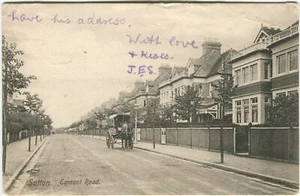 have his address.
With love
& Kisses.
J.E.S.
Sutton. Egmont Road.